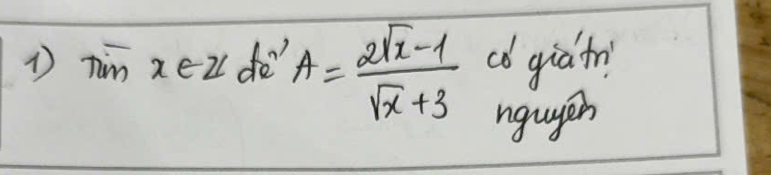 1) Tìm x ∈ Z để A = (2√x - 1)/(√x + 3) có giá trị
nguyên